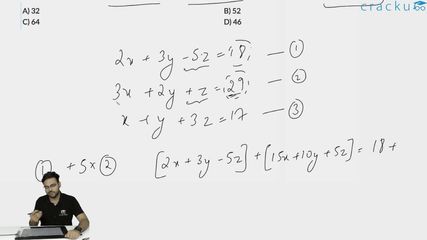 cracku
A) 32 B) 52
C) 64 D) 46
2x + 3y - 5z = 18 — ①
3x + 2y + z = 29 — ②
x + y + 3z = 17 — ③
① + 5 x ② [2x + 3y - 5z] + [15x + 10y + 5z] = 18 +